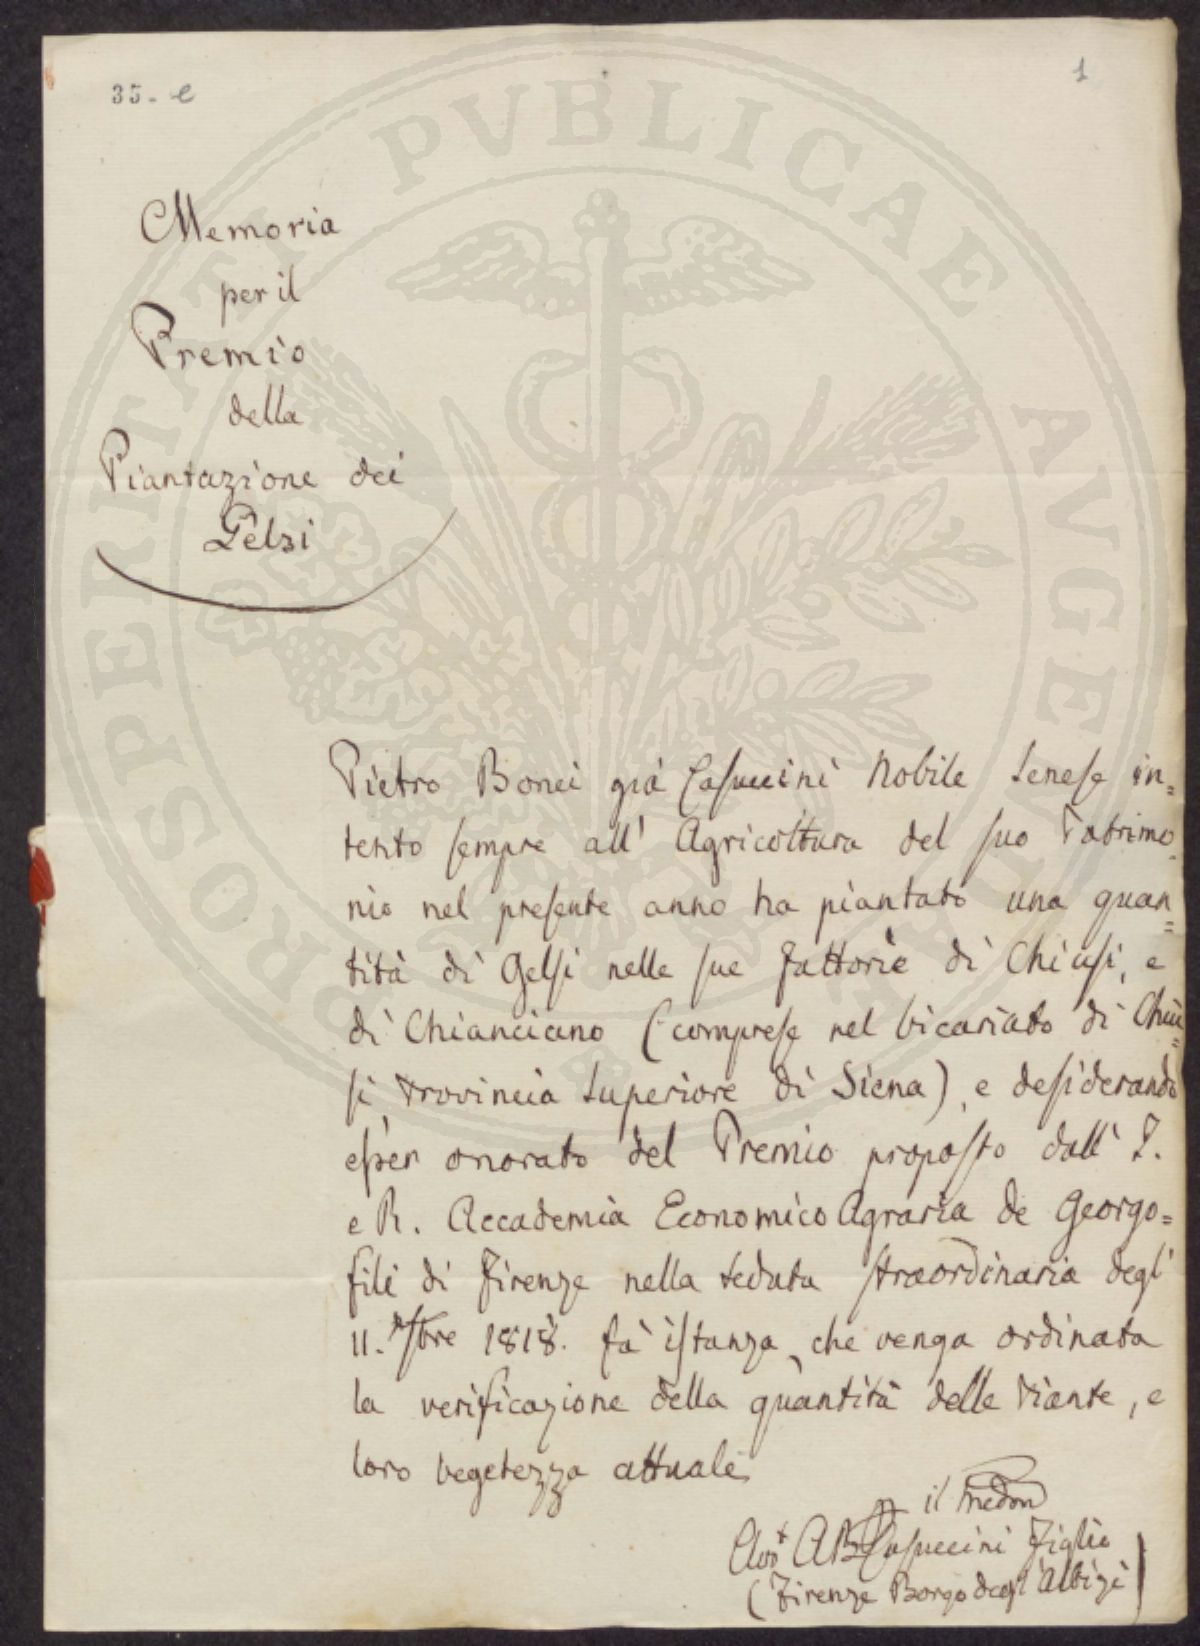 35.-e
1
PROSPERITATI PVBLICAE AVGENDAE
Memoria
per il
Premio
della
Piantazione dei
Gelsi
Pietro Bonci già Casuccini Nobile Senese in=
tento sempre all' Agricoltura del suo Patrimo=
nio nel presente anno ha piantato una quan=
tità di Gelsi nelle sue fattorie di Chiusi, e
di Chianciano (comprese nel Vicariato di Chiu=
si Provincia Superiore di Siena), e desiderando
esser onorato del Premio proposto dall' I.
e R. Accademia Economico Agraria de Georgo=
fili di Firenze nella Seduta straordinaria degl'
11. 1818. fà istanza, che venga ordinata
la verificazione della quantità delle Piante, e
loro vegetezza attuale
il
A B Casuccini Figlio
(Firenze Borgo degl'Albizi)